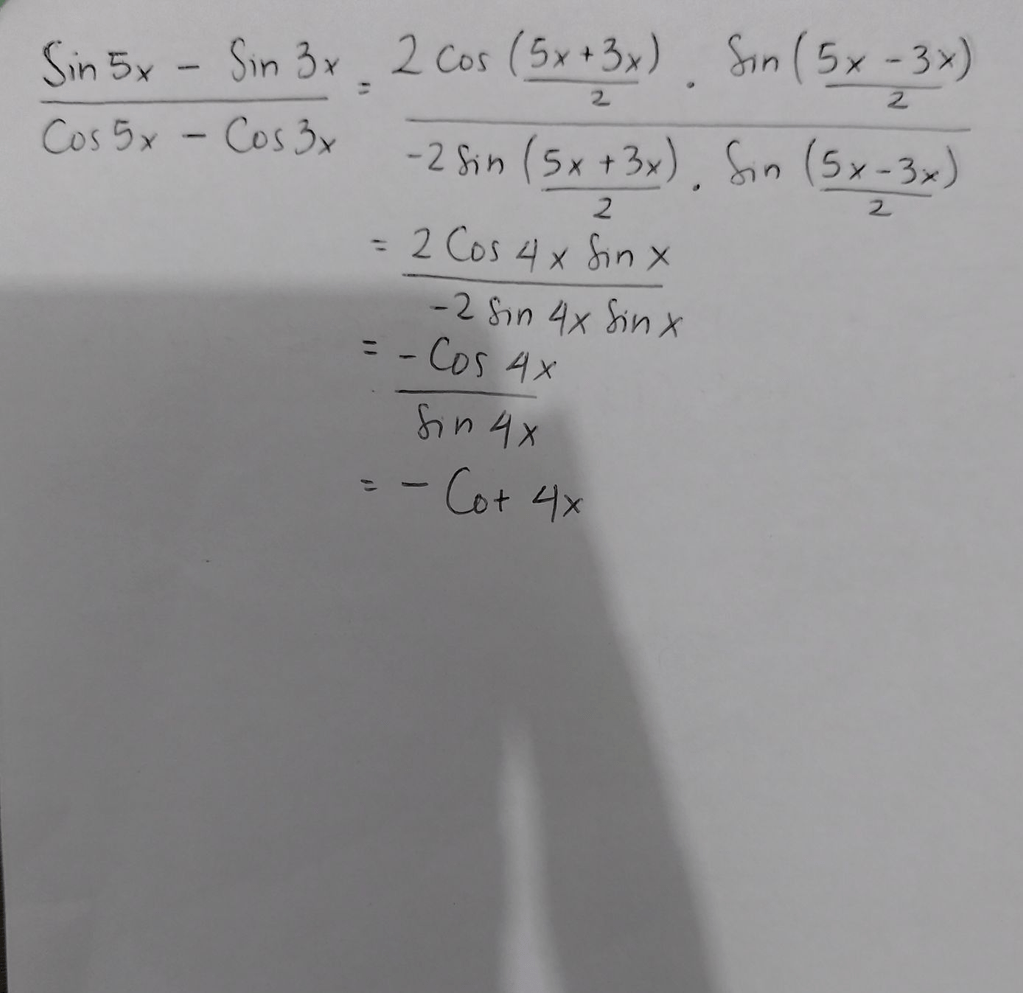 Sin 5x - Sin 3x = 2 Cos (5x+3x) . Sin (5x-3x)
2 2
Cos 5x - Cos 3x -2 Sin (5x+3x) . Sin (5x-3x)
2 2
= 2 Cos 4x Sin x
-2 Sin 4x Sin x
= - Cos 4x
Sin 4x
= - Cot 4x